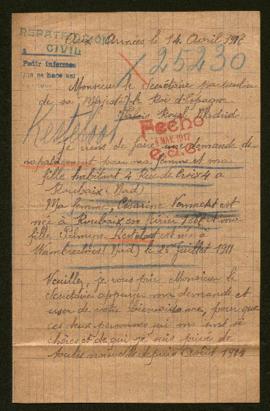 REPATRIACIÓN
CIVIL
Aux Armées le 14 Avril 1917
25230
Pedir informes
Monsieur le Secrétaire particulier
de sa Majesté le Roi d'Espagne
Palais Royal Madrid
Kesteloot
Fecho
MAR. 1917
je viens de faire une demande de
rapatriement pour ma femme et ma
fille habitant 4 Rue de Croix 4 à
Roubaix (Nord)
Ma femme est
née à Roubaix en et ma
fille Kesteloot est née à
Wambrechies (Nord) le 25 juillet 1911
Veuillez, je vous prie Monsieur le
Secrétaire appuyer ma demande et
user de votre bienveillance, pour que
ces deux personnes qui me sont si
chères et de qui je suis privé de
toutes nouvelles depuis Août 1914